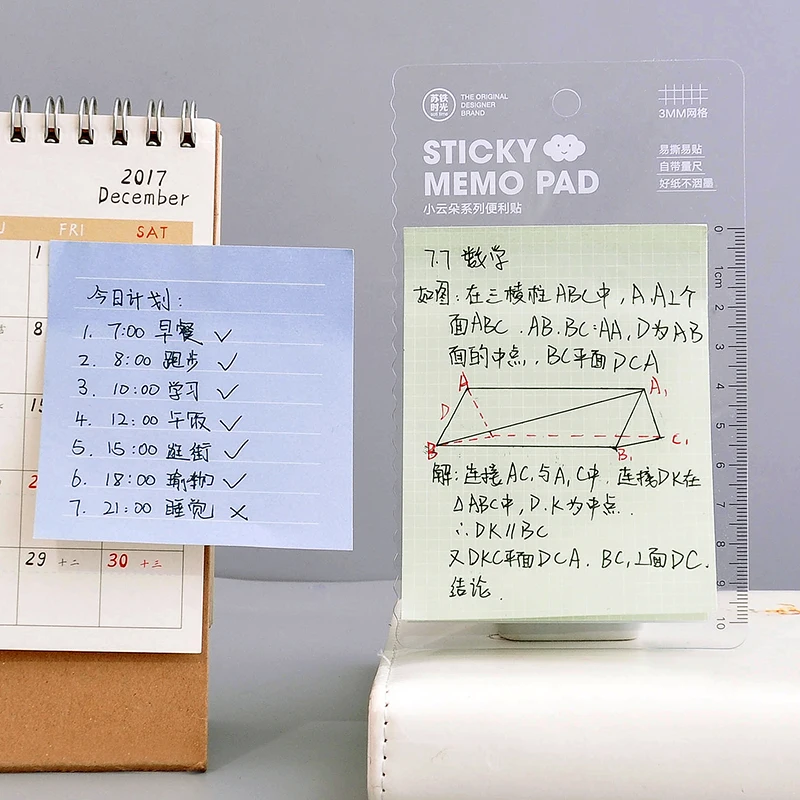 2017
December
FRI
SAT
1
8
15
29 十二
30 十三
今日计划:
1. 7:00 早餐 ✓
2. 8:00 跑步 ✓
3. 10:00 学习 ✓
4. 12:00 午饭 ✓
5. 15:00 逛街 ✓
6. 18:00 购物 ✓
7. 21:00 睡觉 ×
苏铁时光
THE ORIGINAL
DESIGNER
BRAND
3MM网格
STICKY
MEMO PAD
小云朵系列便利贴
易撕易贴
自带量尺
好纸不洇墨
0
1cm
2
3
4
5
6
7
8
9
10
7.7 数学
如图:在三棱柱ABC中,A.A⊥个
面ABC.AB.BC=AA,D为AB
面的中点,.BC平面DCA
A
A₁
D
B
B₁
C₁
解:连接AC,与A,C中.连接DK在
△ABC中,D.K为中点.
∴DK//BC
又DKC平面DCA.BC,⊥面DC.
结论.